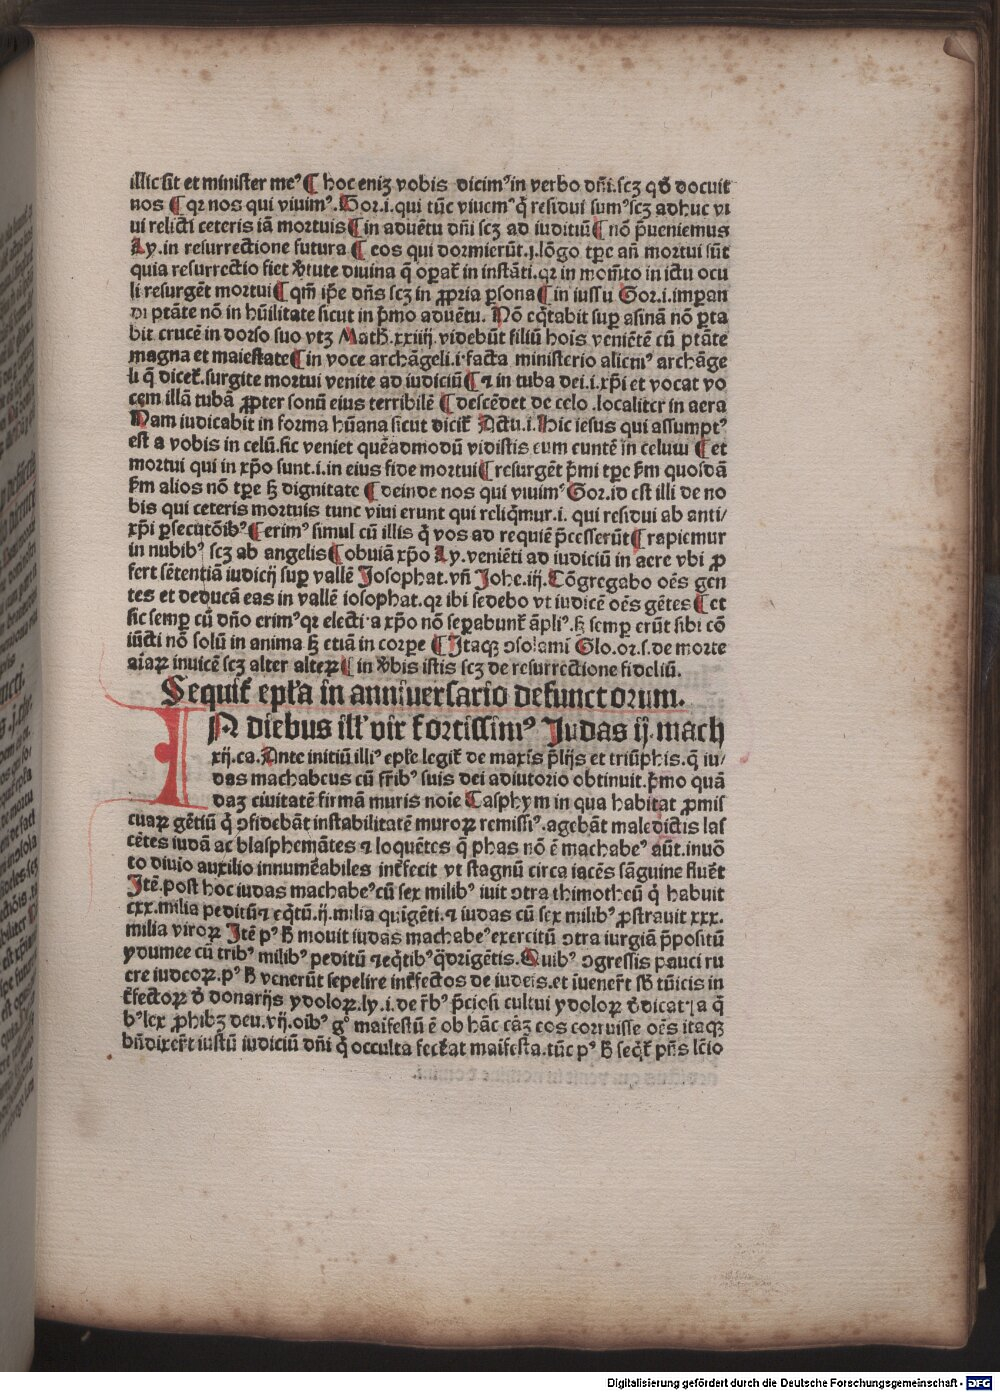 illic sit et minister meꝰ ¶ hoc eniꝫ vobis dicimꝰ in verbo dñi.scꝫ qď docuit
nos ¶ qꝛ nos qui viuimꝰ. Gor.i.qui tūc viuemꝰ q̄ residui sumꝰ scꝫ adhuc vi
ui relicti ceteris iā mortuis ¶ in aduētu dñi scꝫ ad iuditiū ¶ nō p̄ueniemus
Ly.in resurrectione futura ¶ eos qui dormierūt.i.lōgo tꝑe añ mortui sūt
quia resurrectio fiet v̄tute diuina q̄ oꝑat᷑ in instāti.qꝛ in momēto in ictu ocu
li resurgēt mortui ¶ qm̄ ip̄e dñs scꝫ in ꝓpria ꝑsona ¶ in iussu Gor.i.imperan
di ptāte nō in hūilitate sicut in p̄mo aduētu. Nō eq̄tabit suꝑ asinā nō ꝑta
bit crucē in dorso suo vtꝫ Math̄.xxiiij.videbūt filiū hoīs veniētē cū ptāte
magna et maiestate ¶ in voce archāgeli.i.facta ministerio alicuiꝰ archāge
li q̄ dicet᷑.surgite mortui venite ad iudiciū ¶ ⁊ in tuba dei.i.xp̄i et vocat vo
cem illā tubā ꝓpter sonū eius terribilē ¶ descēdet de celo .localiter in aera
Nam iudicabit in forma hūana sicut dicit᷑ Actu.i.Hic iesus qui assumptꝰ
est a vobis in celū.sic veniet quēadmodū vidistis eum euntē in celum ¶ et
mortui qui in xp̄o sunt.i.in eius fide mortui ¶ resurgēt p̄mi tꝑe ẜm quosdā
ẜm alios nō tꝑe ẜꝫ dignitate ¶ deinde nos qui viuimꝰ Gor.id est illi de no
bis qui ceteris mortuis tunc viui erunt qui reliq̄mur.i. qui residui ab anti/
xp̄i ꝑsecutōibꝰ ¶ erimꝰ simul cū illis q̄ vos ad requiē p̄cesserūt ¶ rapiemur
in nubibꝰ scꝫ ab angelis ¶ obuiā xp̄o Ly.veniēti ad iudiciū in aere vbi ꝓ
fert sētentiā iudicij suꝑ vallē Josophat.vñ Johe.iij.Cōgregabo oēs gen
tes et deducā eas in vallē iosophat.qꝛ ibi sedebo vt iudicē oēs gētes ¶ et
sic semꝑ cū dño erimꝰ qꝛ electi a xp̄o nō seꝑabunt᷑ āpliꝰ.ẜꝫ semꝑ erūt sibi cō
iūcti nō solū in anima ẜꝫ etiā in corꝑe ¶ Jtaqꝫ ↄsolami Glo.or.s.de morte
aīaꝝ inuicē scꝫ alter alterꝝ ¶ in v̄bis istis scꝫ de resurrectione fideliū.
Sequit᷑ epl̄a in anniuersario defunctorum.
IN diebus ill᷑ vir fortissimꝰ Judas ij.mach
xij.ca.Ante initiū illiꝰ epl̄e legit᷑ de maxīs p̄lijs et triūphis.q̄ iu/
das machabeus cū fr̄ibꝰ suis dei adiutorio obtinuit.p̄mo quā
daꝫ ciuitatē firmā muris noīe Casphym in qua habitat ꝓmis
cuaꝝ gētiū q̄ ↄfidebāt instabilitatē muroꝝ remissiꝰ.agebāt maledictis las
cētes iudā ac blasphemātes ⁊ loquētes q̄ phas nō ē machabeꝰ aūt.inuo
to diuio auxilio innumēabiles int᷑fecit vt stagnū circa iacēs sāguine fluēt
Jtē.post hoc iudas machabeꝰ cū sex milibꝰ iuit ↄtra thimotheū q̄ habuit
cxx.milia peditū ⁊ eq̄tū.ij.milia quigēti.⁊ iudas cū sex milibꝰ ꝓstrauit xxx.
milia viroꝝ Jtē pꝰ ħ mouit iudas machabeꝰ exercitū ↄtra iurgiā p̄positū
ydumee cū tribꝰ milibꝰ peditū ⁊ eq̄tibꝰ q̄drīgētis.Quibꝰ ↄgressis pauci ru
ere iudeoꝝ.pꝰ ħ venerūt sepelire int᷑fectos de iudeis.et iuenert᷑ sb̄ tūicis in
t᷑fectoꝝ ď donarijs ydoloꝝ.ly.i.de r̄bꝰ p̄ciosi cultui ydoloꝝ ďdicat᷑ a q̄
bꝰ lex ꝓhibꝫ deu.vij.oībꝰ gͦ maifestū ē ob hāc cāꝫ eos corruisse oēs itaqꝫ
bñdixert᷑ iustū iudiciū dñi q̄ occulta fec᷑at maifesta.tūc pꝰ ħ seq̄t᷑ p̄ñs lc̄io
Digitalisierung gefördert durch die Deutsche Forschungsgemeinschaft - DFG